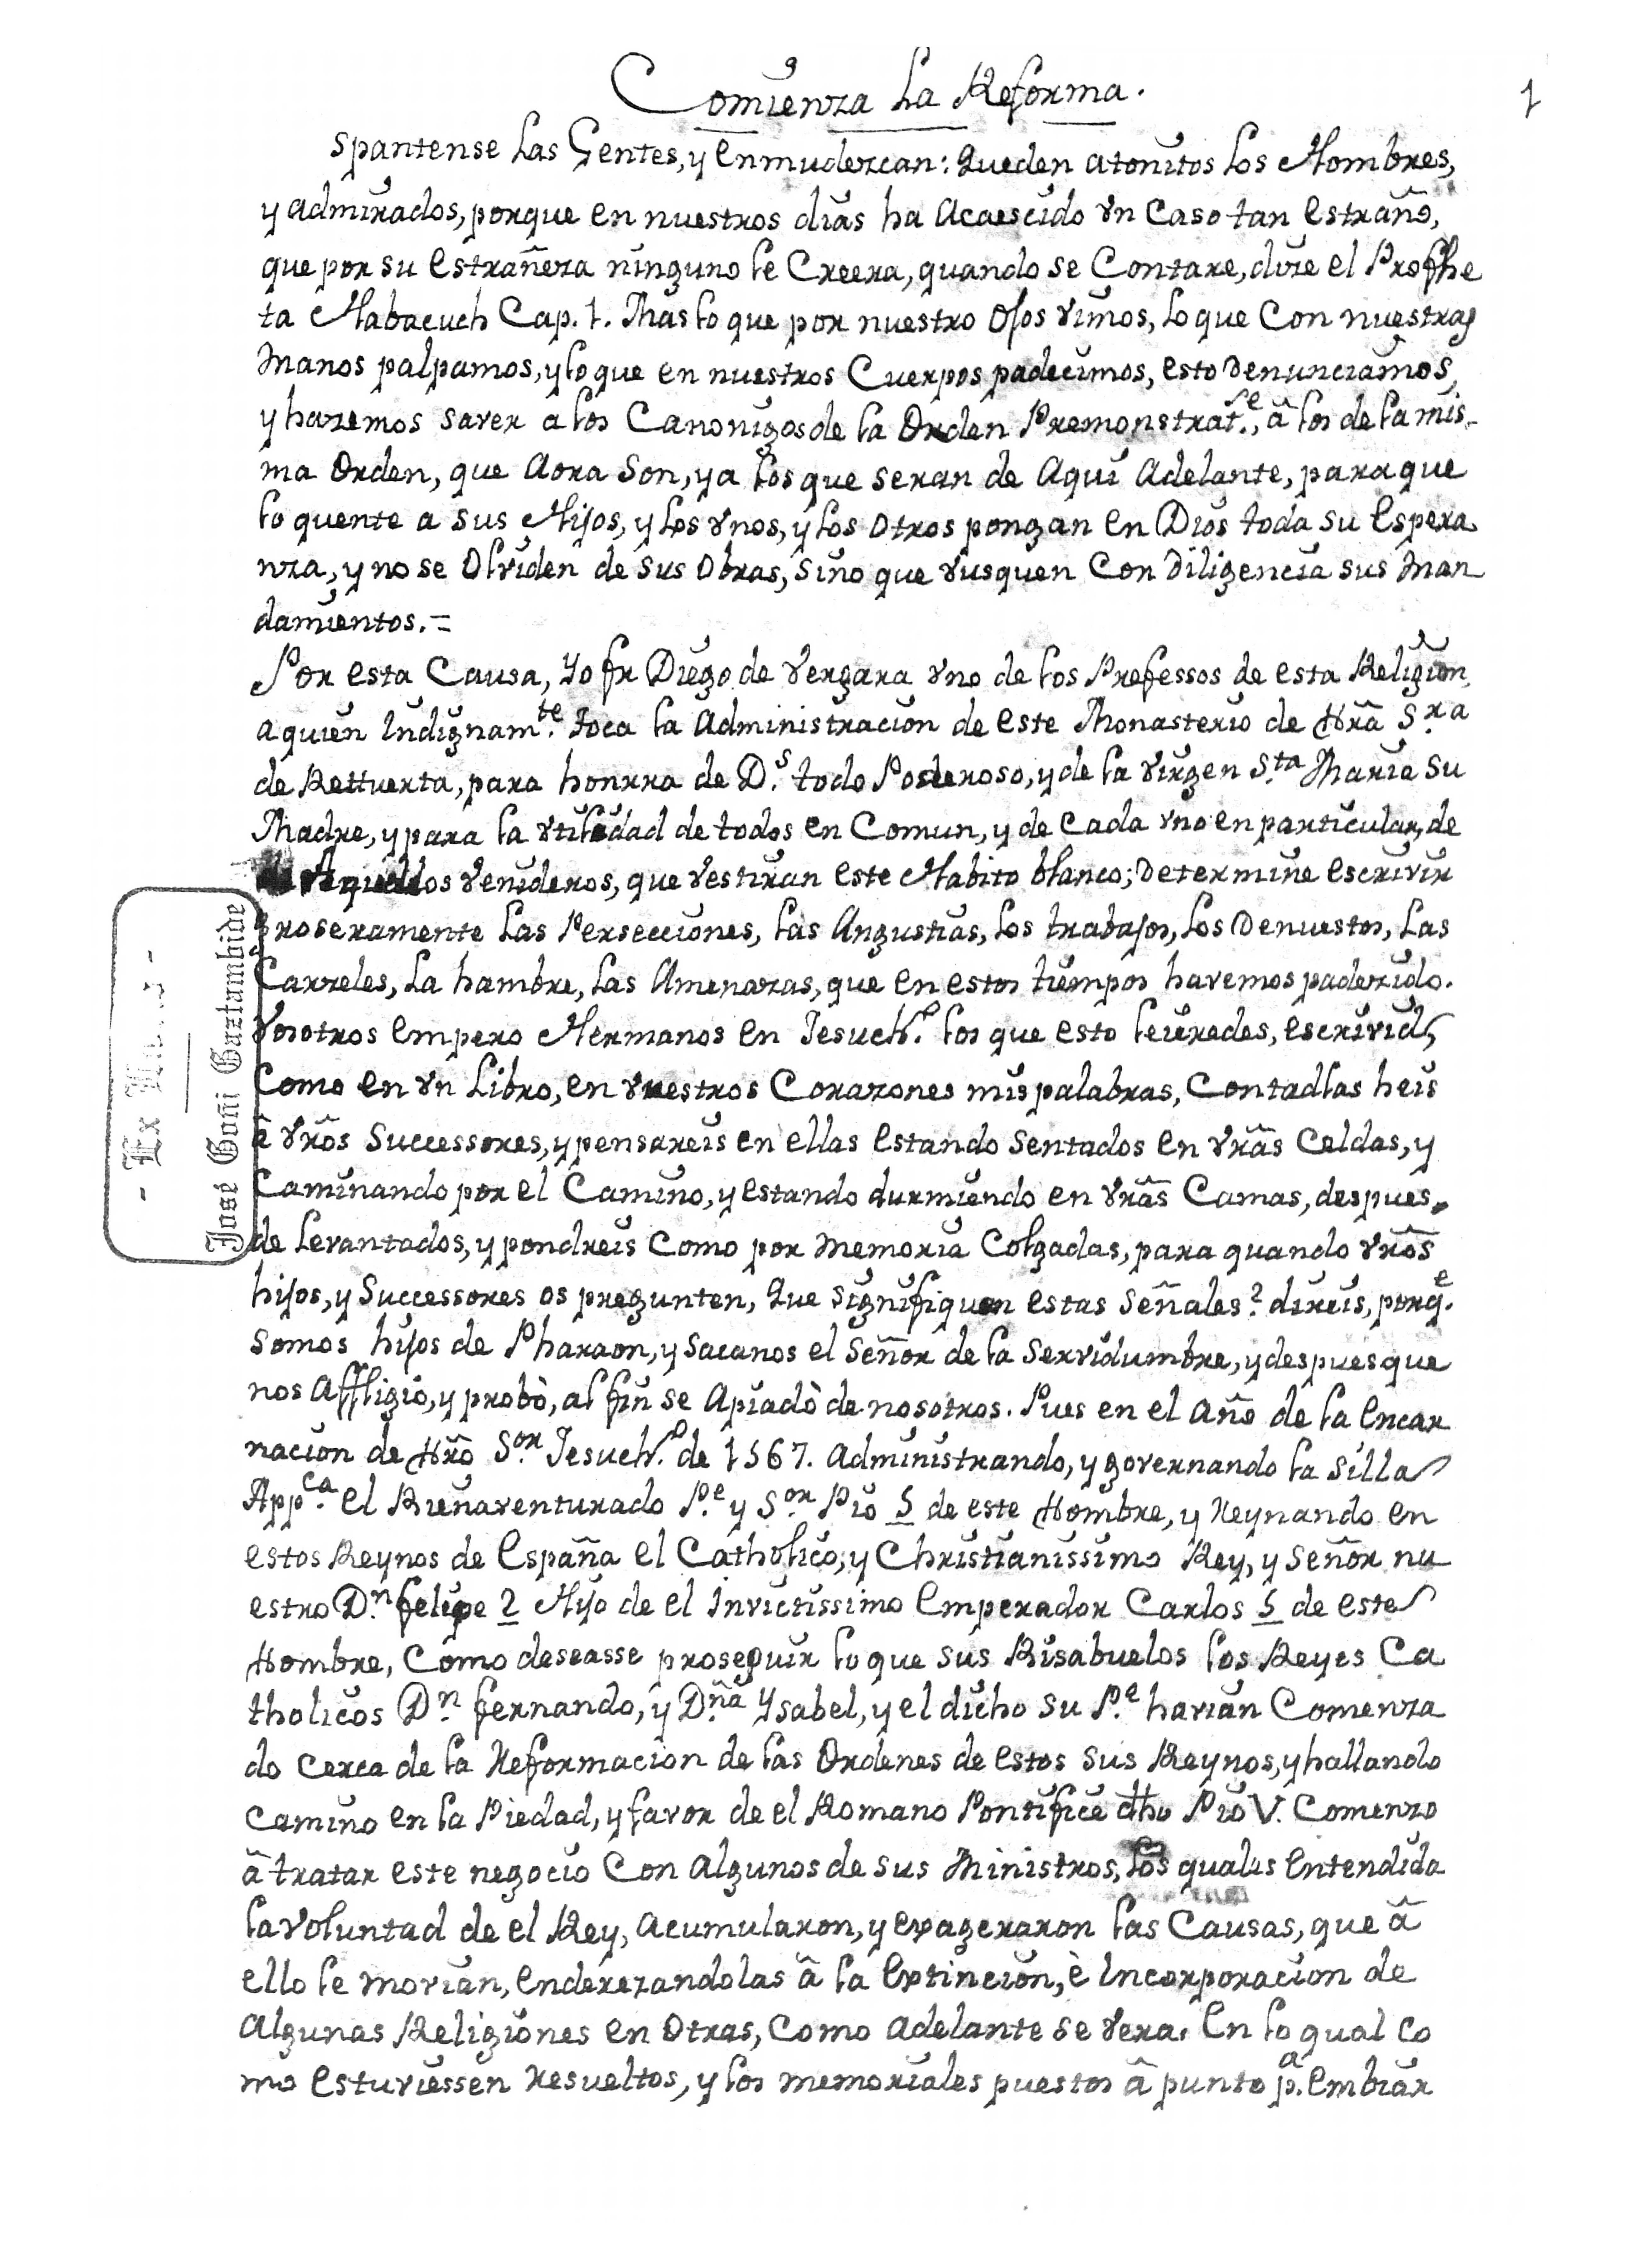 Comienza La Reforma.
1
spantense las Gentes, y enmudezcan: Queden atonitos los Hombres,
y admirados, porque en nuestros dias ha acaescido vn caso tan estraño,
que por su estrañeza ninguno le Creera, quando se Contare, dize el Prophe
ta Habacuch Cap. 1. Mas lo que por nuestro ojos vimos, lo que Con nuestras
manos palpamos, y lo que en nuestros Cuerpos padecimos, esto denunciamos,
y hazemos saver a los Canonigos de la Orden Premonstrat.se, â los de la mis-
ma Orden, que aora son, y a los que seran de aqui adelante, para que
lo quente a sus Hijos, y los vnos, y los otros pongan en Dios toda su espera
nza, y no se olviden de sus obras, sino que vusquen Con diligencia sus man
damientos.=
Por esta Causa, Yo fr Diego de Vergara vno de los Professos de esta Religion,
a quien indignam.te toca la administracion de este Monasterio de Nrâ S.ra
de Rettuerta, para honrra de D.s todo Poderoso, y de la virgen S.ta Maria su
Madre, y para la vtilidad de todos en Comun, y de Cada vno en particular, de
Aquellos venideros, que vestiran este Habito blanco; determine escrivir
groseramente las Persecciones, las Angustias, los trabajos, los denuestos, las
Carzeles, la hambre, las Amenazas, que en estos tiempos havemos padezido.
Vosotros empero Hermanos en Jesuch.o los que esto leieredes, escrivid,
Como en vn Libro, en vuestros Corazones mis palabras, Contadlas heis
â vrôs successores, y pensareis en ellas estando sentados en vrâs Celdas, y
Caminando por el Camino, y estando durmiendo en vrâs Camas, despues
de levantados, y pondreis como por memoria Colgadas, para quando vrôs
hijos, y successores os pregunten, Que significan estas señales? direis, porq.e
somos hijos de Pharaon, y sacanos el señor de la servidumbre, y despues que
nos affligio, y probò, al fin se apiadò de nosotros. Pues en el año de la encar
nacion de Nrô S.or Jesuch.o de 1567. administrando, y governando la silla
App.ca el Buenaventurado P.e y S.or Pio 5 de este Nombre, y Reynando en
estos Reynos de España el Catholico, y Christianissimo Rey, y señor nu
estro D.n felipe 2 Hijo de el invictissimo emperador Carlos 5 de este
Nombre, Como deseasse proseguir lo que sus Bisabuelos los Reyes Ca
tholicos D.n fernando, y D.ña Ysabel, y el dicho su P.e havian Comenza
do cerca de la Reformacion de las Ordenes de estos sus Reynos, y hallando
camino en la Piedad, y favor de el Romano Pontifice dho Pio V. Comenzo
â tratar este negocio Con algunos de sus Ministros, los quales entendida
la voluntad de el Rey, acumularon, y exageraron las Causas, que â
ello le movian, enderezandolas â la extincion, è incorporacion de
algunas Religiones en otras, como adelante se vera. En lo qual co
mo estuviessen resueltos, y los memoriales puestos â punto p.a embiar
- Ex Libris -
José Goñi Gaztambide